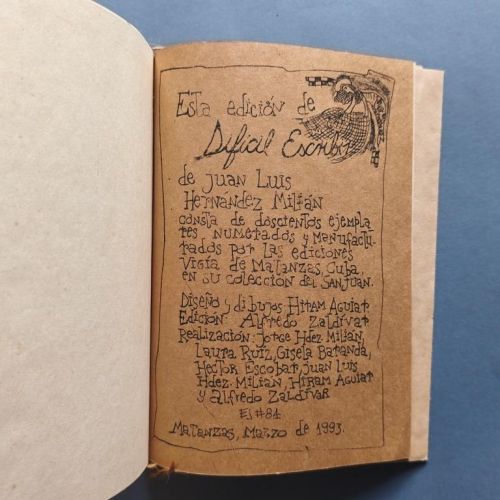 Esta edición de
Difícil Escribir
de Juan Luis
Hernández Milián
consta de doscientos ejempla
res numerados y manufactu
rados por las ediciones
Vigía de Matanzas, Cuba,
en su colección del San Juan.
Diseño y dibujos Hiram Aguiar
Edición: Alfredo Zaldívar
Realización: Jorge Hdez Milián,
Laura Ruiz, Gisela Baranda,
Hector Escobar, Juan Luis
Hdez. Milián, Hiram Aguiar
y Alfredo Zaldívar
El #84
Matanzas, Marzo de 1993.